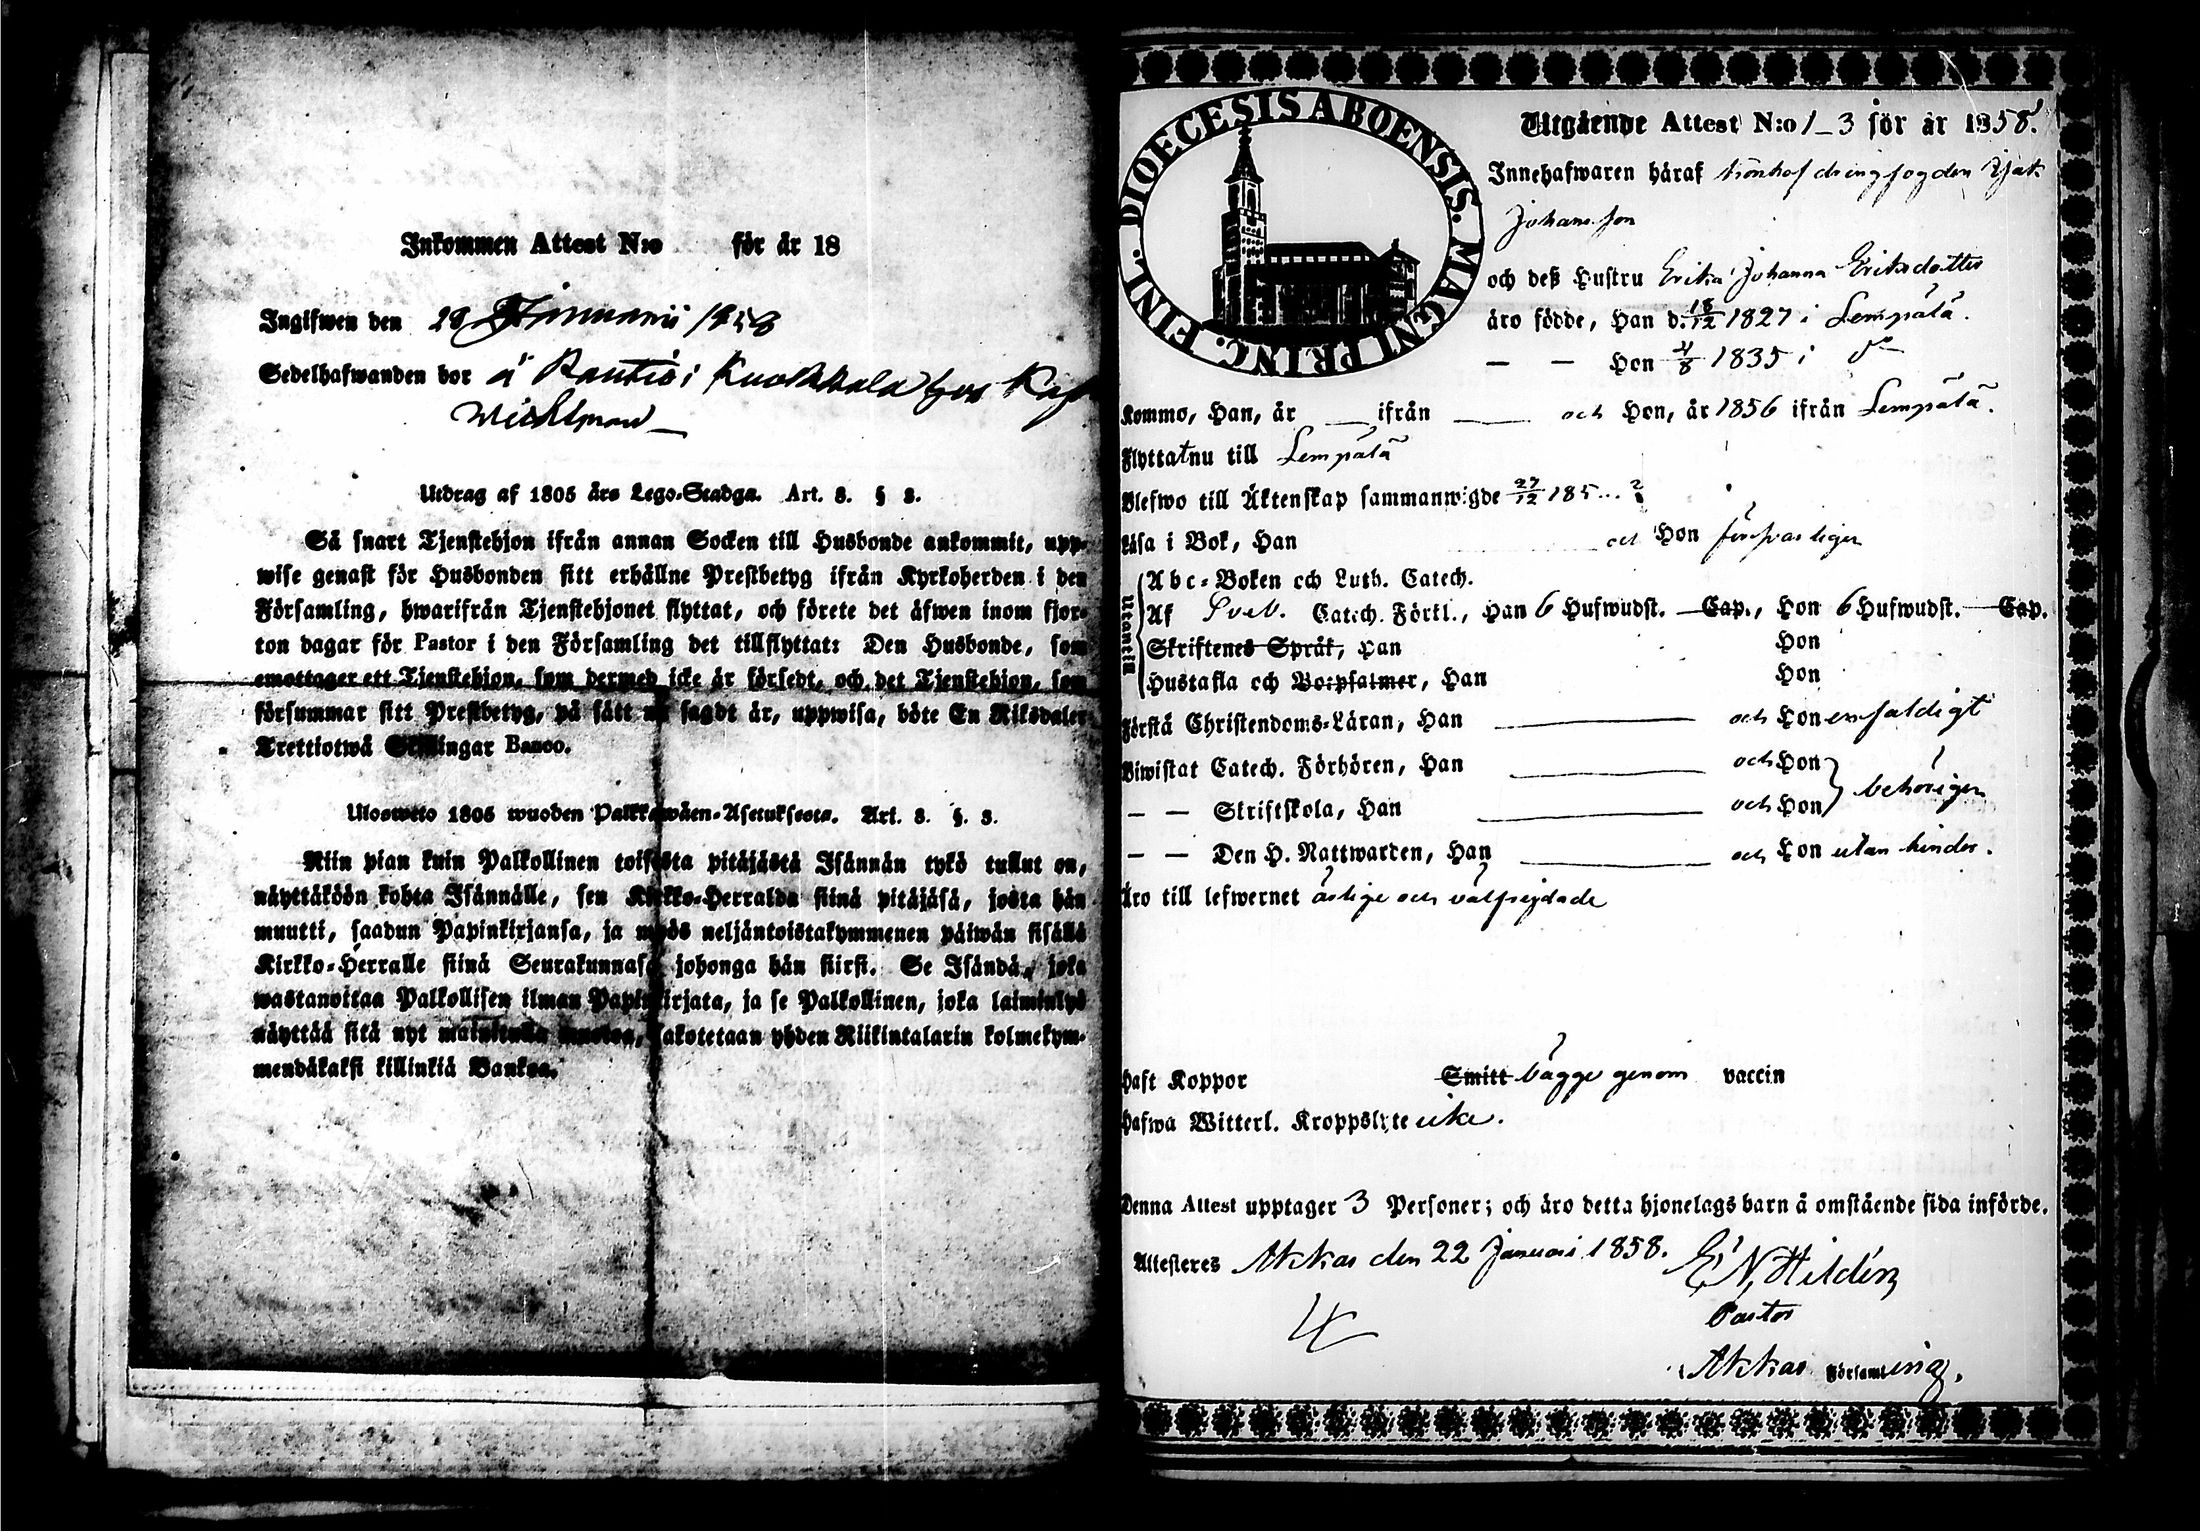 Inkommen Attest N:o för år 18
Ingifwen den 28 Januarii 1858
Sedelhafwanden bor å Rautio i Kuokkala hos
Utdrag af 1805 års Lego-Stadga. Art. 8. § 3.
Så snart Tjenstehjon ifrån annan Socken till Husbonde ankommit, upp-
wise genast för Husbonden sitt erhållne Prestbetyg ifrån Kyrkoherden i den
Församling, hwarifrån Tjenstehjonet flyttat, och förete det äfwen inom fjor-
ton dagar för Pastor i den Församling det tillflyttat: Den Husbonde, som
emottager ett Tjenstehjon, som dermed icke är försedt, och det Tjenstehjon, som
försummar sitt Prestbetyg, på sätt nu sagdt är, uppwisa, böte En Riksdaler
Trettiotwå Skillingar Banco.
Uloswето 1805 wuoden Palkkawäen-Asetuksesta. Art. 8. §. 3.
Niin pian kuin Palkollinen toisesta pitäjästä Isännän tykö tullut on,
näyttäköön kohta Isännälle, sen Kirkko-Herralda siinä pitäjäsä, josta hän
muutti, saadun Papinkirjansa, ja myös neljäntoistakymmenen päiwän sisällä
Kirkko-Herralle siinä Seurakunnasa johonga hän siirsi. Se Isändä, joka
wastanottaa Palkollisen ilman Papinkirjata, ja se Palkollinen, joka laiminlyö
näyttää sitä nyt mainitulla muotoa, sakotetaan yhden Riikintalarin kolmekym-
mendäkaksi killinkiä Bankoa.
DIOECESIS ABOENSIS. MAGNI PRINC. FINL.
Utgående Attest N:o 1-3 för år 1858.
Innehafwaren häraf drengfogden
Johansson
och deß Hustru Erika Johanna Eriksdotter
äro födde, Han d. 18/12 1827 i Lempälä.
— — Hon 21/8 1835 i do
Kommo, Han, år — ifrån — och Hon, år 1856 ifrån Lempälä.
Flyttat nu till Lempälä
Blefwo till Äktenskap sammanwigde 27/12 185...?
Läsa i Bok, Han och Hon försvarligen
Utantill
Abc-Boken och Luth. Catech.
Af Sveb. Catech. Förkl., Han 6 Hufwudst. — Cap., Hon 6 Hufwudst. — Cap.
Skriftenes Språk, Han Hon
Hustafla och Botpsalmer, Han Hon
Förstå Christendoms-Läran, Han — och Hon enfaldigt
Biwistat Catech. Förhören, Han — och Hon
— — Skriftskola, Han — och Hon behörigen
— — Den H. Nattwarden, Han — och Hon utan hinder.
Äro till lefwernet ärlige och välfrejdade
Haft Koppor Smitt bägge genom vaccin
Hafwa Witterl. Kroppslyte icke.
Denna Attest upptager 3 Personer; och äro detta hjonelags barn å omstående sida införde.
Attesteres Akkas den 22 Januari 1858. E N Hildén
Pastor
Akkas Församling.